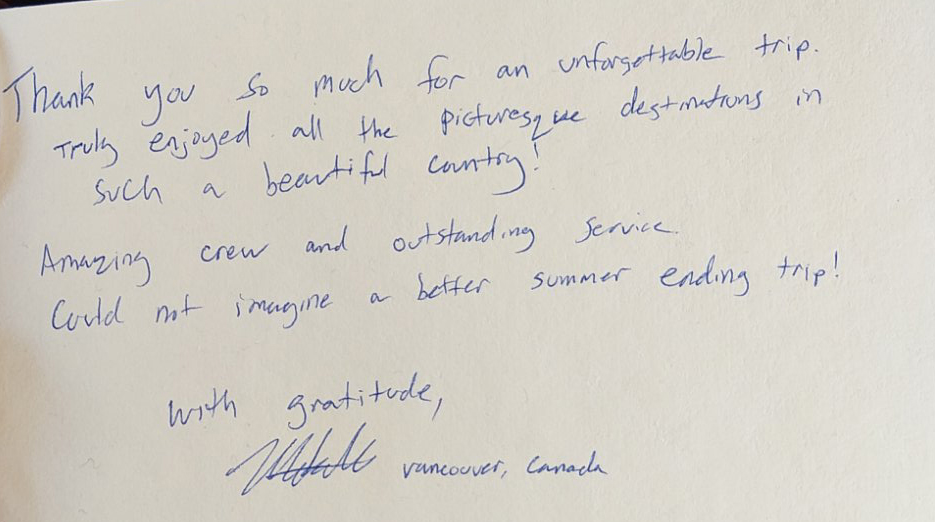 Thank you so much for an unforgettable trip.
Truly enjoyed all the picturesque destinations in
such a beautiful country!
Amazing crew and outstanding service
Could not imagine a better summer ending trip!
With gratitude,
Vancouver, Canada